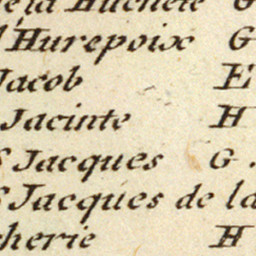 de la Huchette G
l'Hurepoix G
Jacob E
Jacinte H
S Jacques G.
S Jacques de la
cherie H